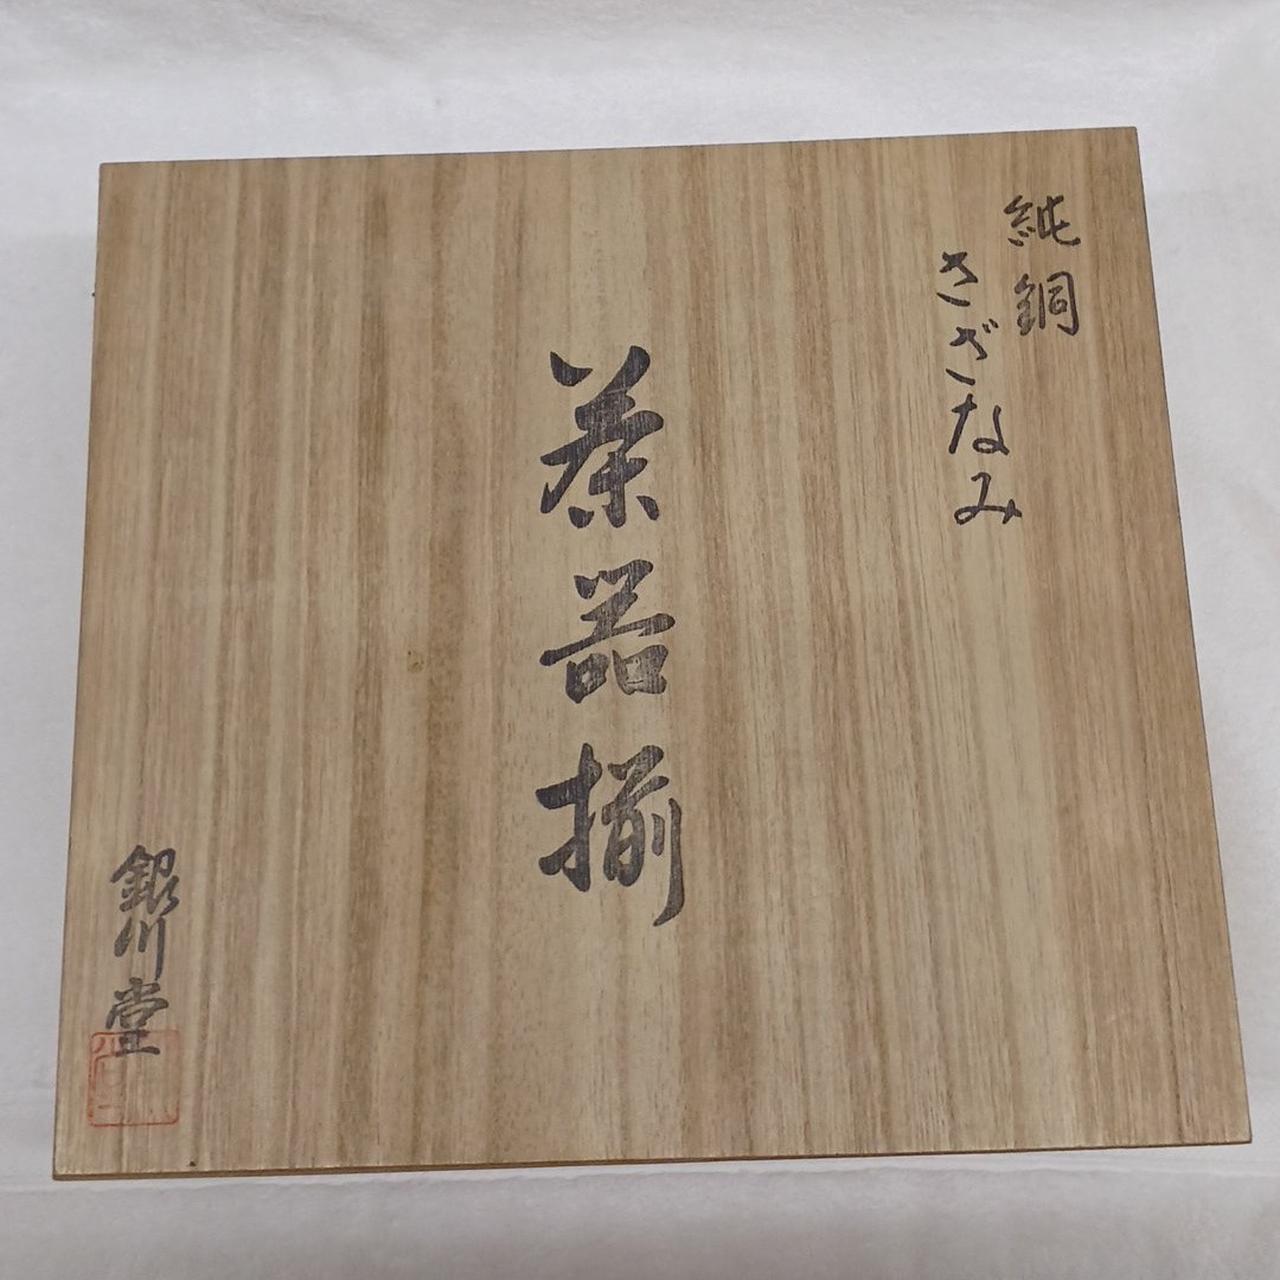 純銅
さざなみ
茶器揃
銀川堂